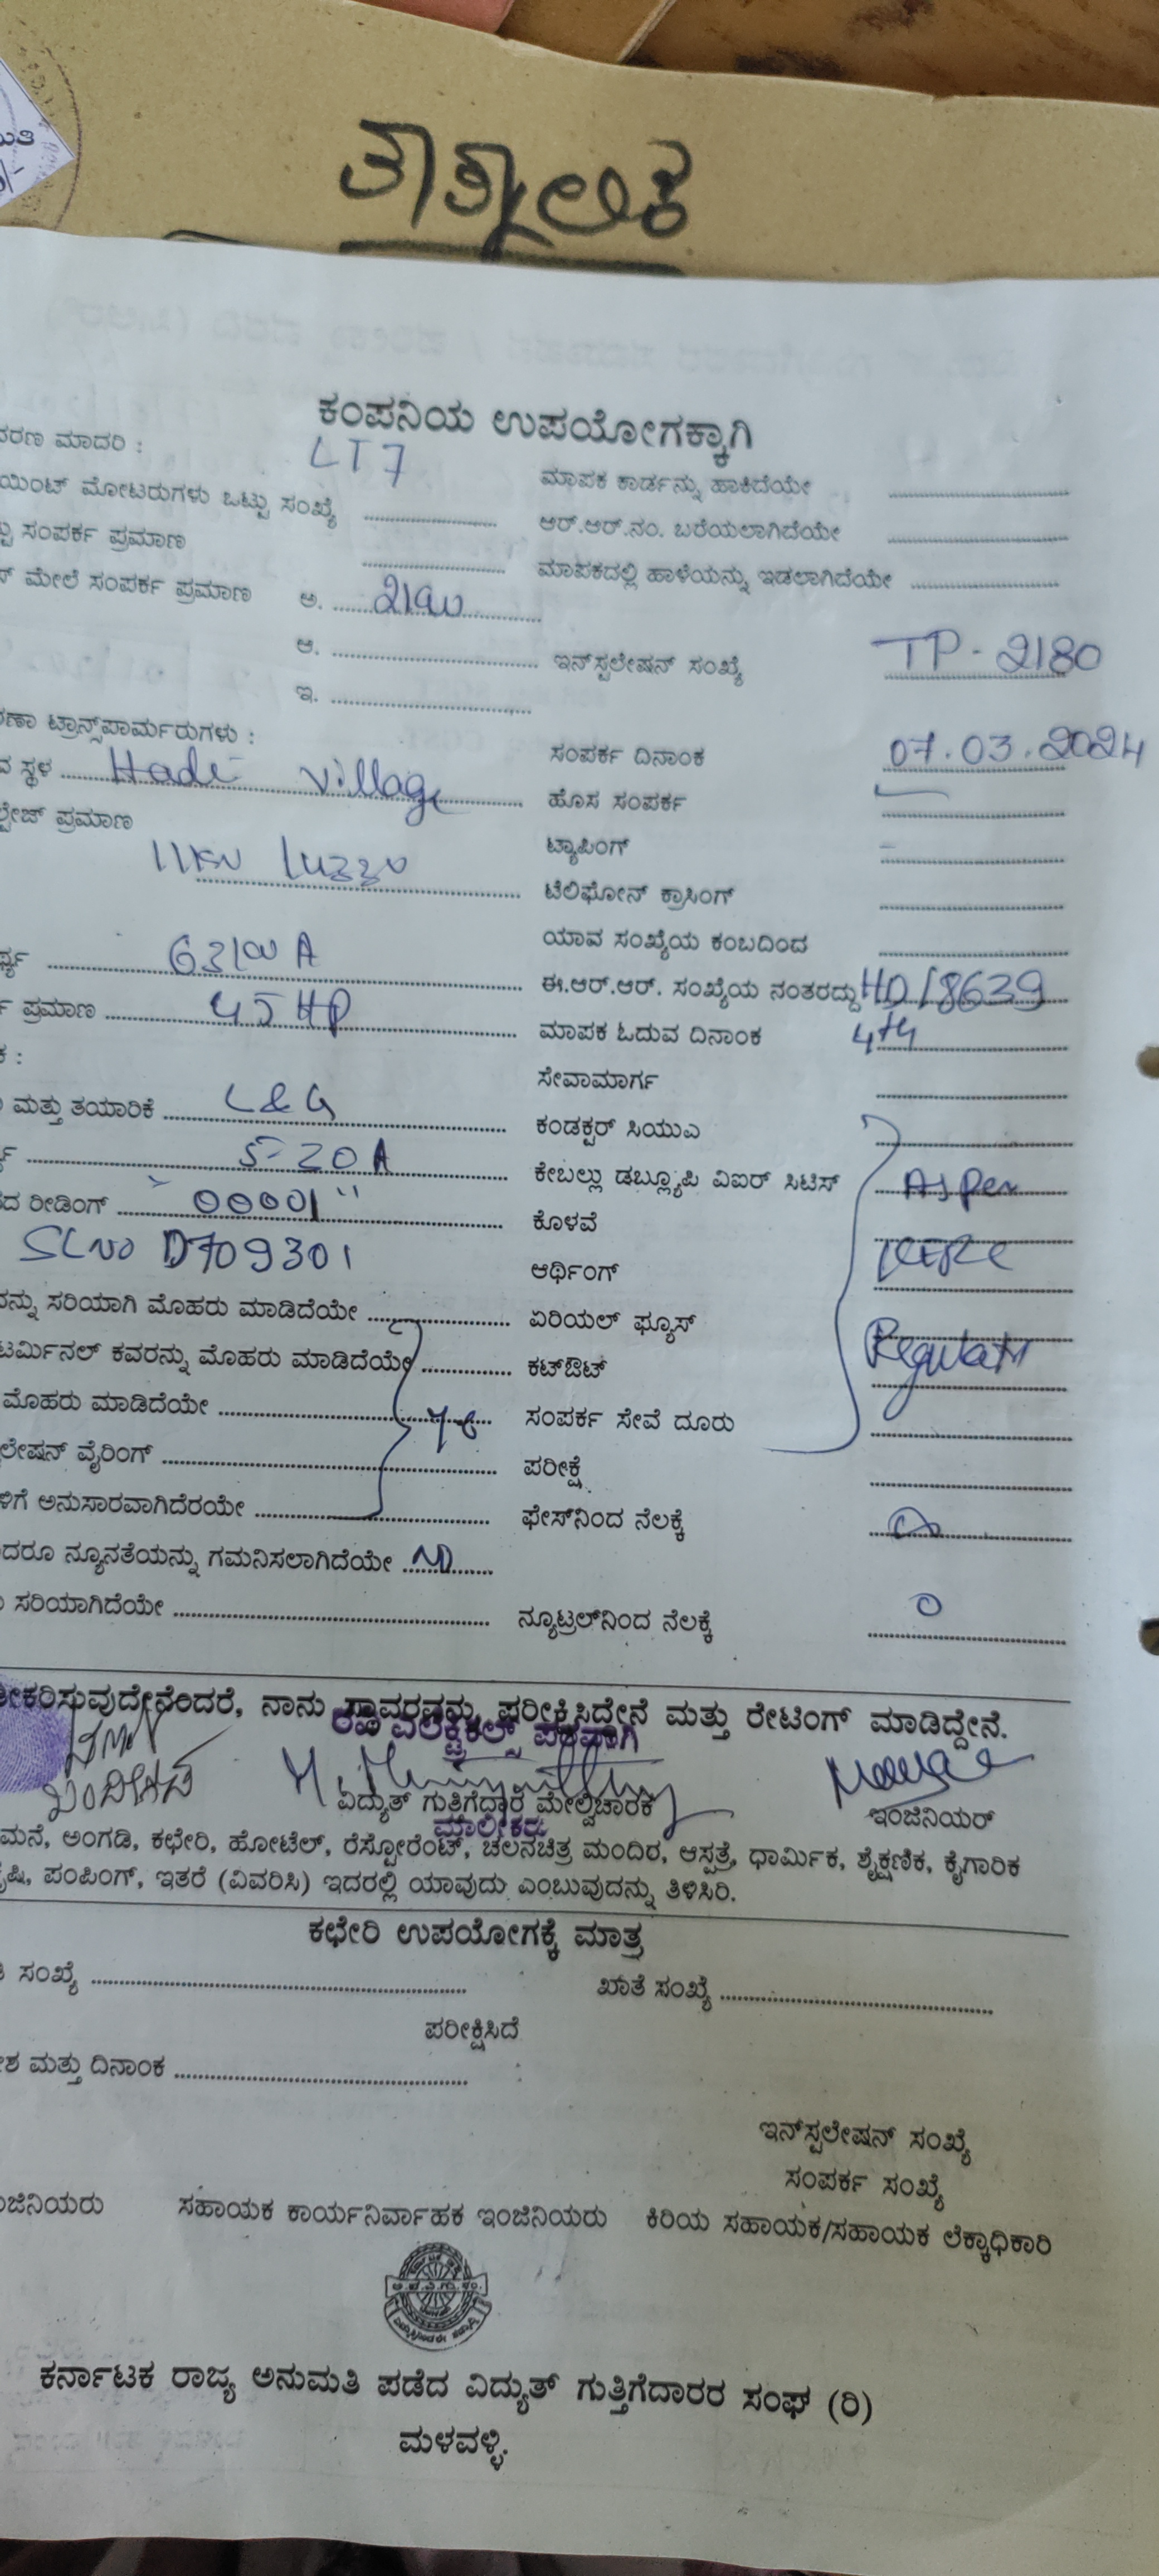 ತಾತ್ಕಾಲಿಕ
ಕಂಪನಿಯ ಉಪಯೋಗಕ್ಕಾಗಿ
ಮಾದರಿ : LT7
ಮೋಟರುಗಳು ಒಟ್ಟು ಸಂಖ್ಯೆ
ಮಾಪಕ ಕಾರ್ಡನ್ನು ಹಾಕಿದೆಯೇ
ಸಂಪರ್ಕ ಪ್ರಮಾಣ
ಆರ್.ಆರ್.ನಂ. ಬರೆಯಲಾಗಿದೆಯೇ
ಮೇಲೆ ಸಂಪರ್ಕ ಪ್ರಮಾಣ ಅ.
ಮಾಪಕದಲ್ಲಿ ಹಾಳೆಯನ್ನು ಇಡಲಾಗಿದೆಯೇ
ಆ.
ಇನ್‌ಸ್ಟಲೇಷನ್ ಸಂಖ್ಯೆ TP-2180
ಇ.
ಟ್ರಾನ್ಸ್‌ಪಾರ್ಮರುಗಳು :
ಸಂಪರ್ಕ ದಿನಾಂಕ 07.03.2024
ಸ್ಥಳ Hadi Village
ಹೊಸ ಸಂಪರ್ಕ
ಪ್ರಮಾಣ
ಟ್ಯಾಪಿಂಗ್ -
11KV
ಟೆಲಿಫೋನ್ ಕ್ರಾಸಿಂಗ್
ಯಾವ ಸಂಖ್ಯೆಯ ಕಂಬದಿಂದ
ಈ.ಆರ್.ಆರ್. ಸಂಖ್ಯೆಯ ನಂತರದ್ದು HD/8639
ಪ್ರಮಾಣ 45 HP
ಮಾಪಕ ಓದುವ ದಿನಾಂಕ 4th
ಸೇವಾಮಾರ್ಗ
ಮತ್ತು ತಯಾರಿಕೆ L&G
ಕಂಡಕ್ಟರ್ ಸಿಯುಎ
5-20 A
ಕೇಬಲ್ಲು ಡಬ್ಲ್ಯೂಪಿ ವಿಐಆರ್ ಸಿಟಿಸ್ As per
ರೀಡಿಂಗ್ "00001"
ಕೊಳವೆ
SL NO D709301
ಆರ್ಥಿಂಗ್ KERC
ಸರಿಯಾಗಿ ಮೊಹರು ಮಾಡಿದೆಯೇ
ಏರಿಯಲ್ ಫ್ಯೂಸ್
ಕವರನ್ನು ಮೊಹರು ಮಾಡಿದೆಯೇ
ಕಟ್‌ಔಟ್
ಮೊಹರು ಮಾಡಿದೆಯೇ
ಸಂಪರ್ಕ ಸೇವೆ ದೂರು
ವೈರಿಂಗ್
ಪರೀಕ್ಷೆ
ಅನುಸಾರವಾಗಿದೆರಯೇ
ಫೇಸ್‌ನಿಂದ ನೆಲಕ್ಕೆ
ನ್ಯೂನತೆಯನ್ನು ಗಮನಿಸಲಾಗಿದೆಯೇ NO
ಸರಿಯಾಗಿದೆಯೇ
ನ್ಯೂಟ್ರಲ್‌ನಿಂದ ನೆಲಕ್ಕೆ 0
ನಾನು ಸ್ಥಾವರವನ್ನು ಪರೀಕ್ಷಿಸಿದ್ದೇನೆ ಮತ್ತು ರೇಟಿಂಗ್ ಮಾಡಿದ್ದೇನೆ.
ವಿದ್ಯುತ್ ಗುತ್ತಿಗೆದಾರ ಮೇಲ್ವಿಚಾರಕ
ಇಂಜಿನಿಯರ್
ಮಾಲೀಕರು
ಮನೆ, ಅಂಗಡಿ, ಕಛೇರಿ, ಹೋಟೆಲ್, ರೆಸ್ಟೋರೆಂಟ್, ಚಲನಚಿತ್ರ ಮಂದಿರ, ಆಸ್ಪತ್ರೆ, ಧಾರ್ಮಿಕ, ಶೈಕ್ಷಣಿಕ, ಕೈಗಾರಿಕ
ಪಂಪಿಂಗ್, ಇತರೆ (ವಿವರಿಸಿ) ಇದರಲ್ಲಿ ಯಾವುದು ಎಂಬುವುದನ್ನು ತಿಳಿಸಿರಿ.
ಕಛೇರಿ ಉಪಯೋಗಕ್ಕೆ ಮಾತ್ರ
ಸಂಖ್ಯೆ
ಖಾತೆ ಸಂಖ್ಯೆ
ಪರೀಕ್ಷಿಸಿದೆ
ಮತ್ತು ದಿನಾಂಕ
ಇನ್‌ಸ್ಟಲೇಷನ್ ಸಂಖ್ಯೆ
ಸಂಪರ್ಕ ಸಂಖ್ಯೆ
ಸಹಾಯಕ ಕಾರ್ಯನಿರ್ವಾಹಕ ಇಂಜಿನಿಯರು
ಕಿರಿಯ ಸಹಾಯಕ/ಸಹಾಯಕ ಲೆಕ್ಕಾಧಿಕಾರಿ
ಕರ್ನಾಟಕ ರಾಜ್ಯ ಅನುಮತಿ ಪಡೆದ ವಿದ್ಯುತ್ ಗುತ್ತಿಗೆದಾರರ ಸಂಘ (ರಿ)
ಮಳವಳ್ಳಿ.